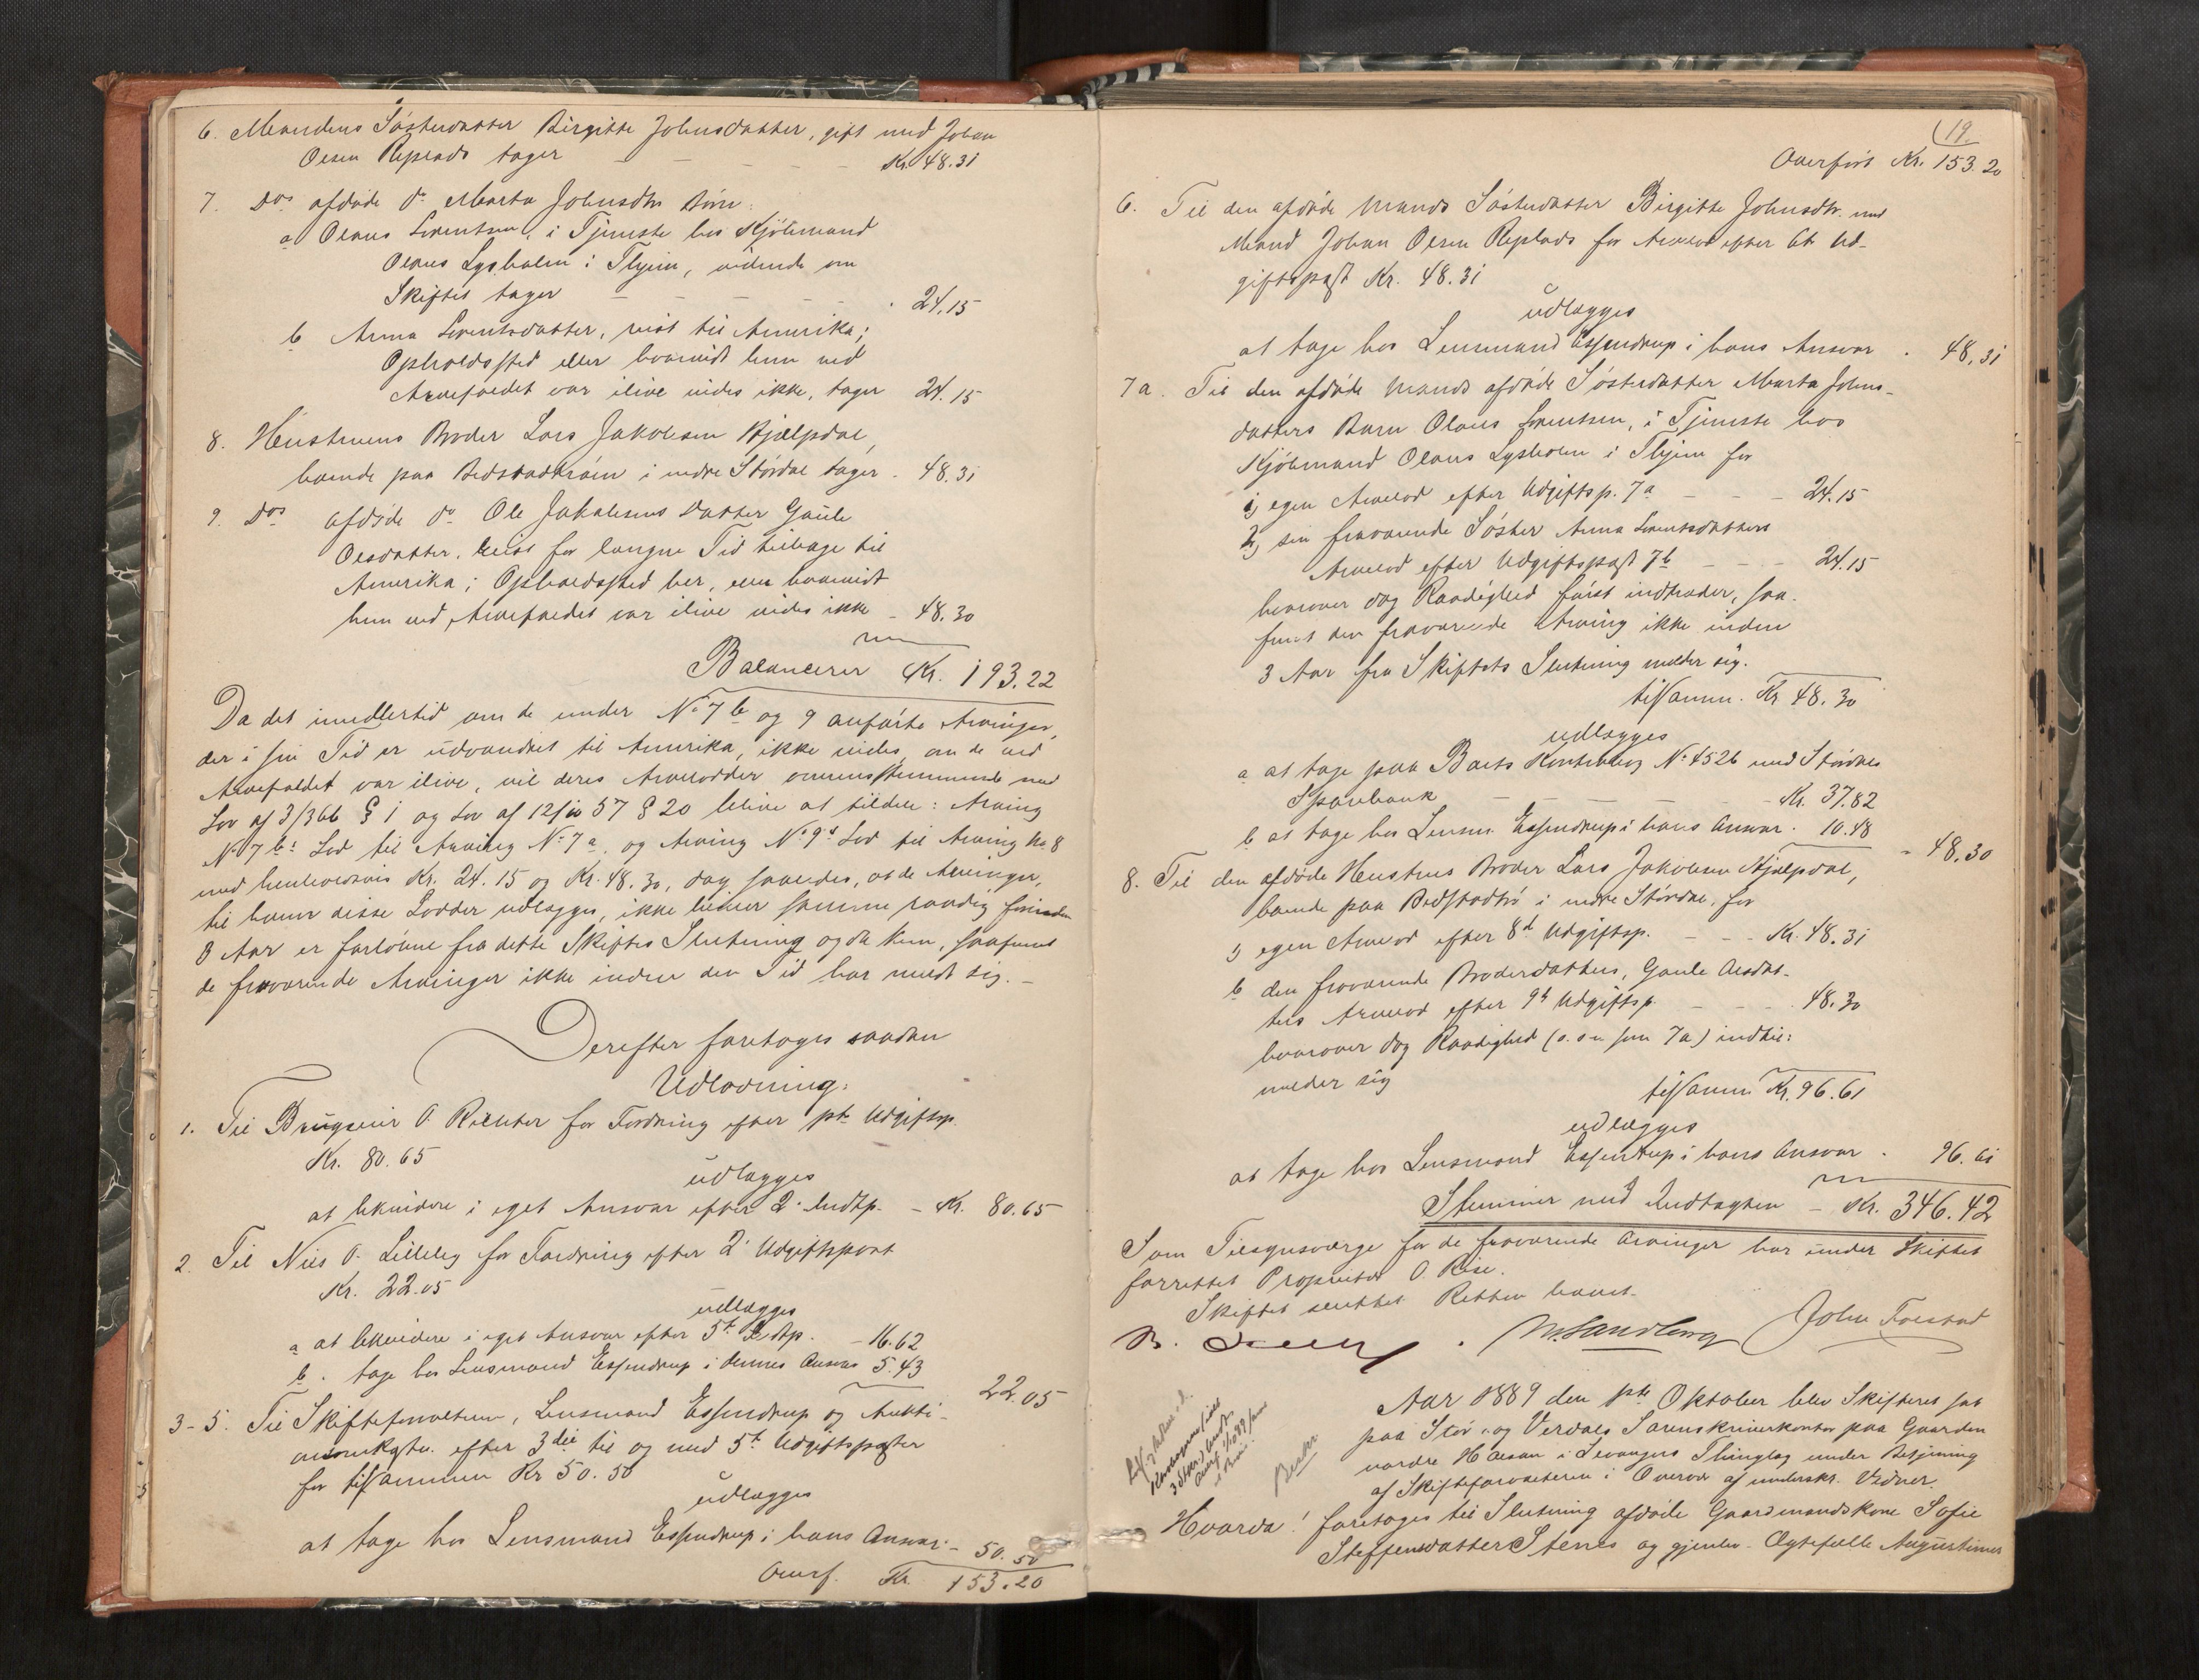 6. Mandens Søsterdatter Birgitte Johnsdatter, gift med Johan
Olsen Replads tager - - - - Kr. 48.31
7. Dos afdøde do Marta Johnsdtrs Børn:
a Olaus Lorentsen, i Tjeneste hos Kjøbmand
Olaus Lysholm i Thjem, vidende om
Skiftet tager - - - - - 24.15
b Anna Lorentsdatter, reist til Amerika;
Opholdssted eller hvorvidt hun ved
Arvefaldet var ilive vides ikke, tager 24.15
8. Hustruens Broder Lars Jakobsen Hjælpdal,
boende paa Bedstadtrøen i nedre Størdal tager - 48.31
9. Dos afdøde do Ole Jakobsens Datter Gaule
Olsdatter, reist for længere Tid tilbage til
Amerika; Opholdssted her, eller hvorvidt
hun ved Arvefaldet var ilive vides ikke - 48.30
Balancerer Kr. 193.22
Da det imidlertid om de under No 7b og 9 anførte Arvinger,
der i sin Tid er udvandret til Amerika, ikke vides, om de ved
Arvefaldet var ilive, vil deres Arvelodder overensstemmende med
Lov af 3/3 66 § 1 og Lov af 12/10 57 § 20 blive at tildele: Arving
No 7bs Lod til Arving No 7a, og Arving No 9s Lod til Arving No 8
med henholdsvis Kr. 24.15 og Kr. 48.30, dog saaledes, at de Arvinger,
til hvem disse Lodder udlægges, ikke bliver samme raadig forinden
3 Aar er forløbne fra dette Skiftes Slutning og da kun, saafremt
de fraværende Arvinger ikke inden den Tid har meldt sig. -
Derefter foretoges saadan
Udlodning:
1. Til Brugseier O. Richter for Fordring efter 1ste Udgiftsp.
Kr. 80.65
udlægges
at likvidere i eget Ansvar efter 2. Indtp. - Kr. 80.65
2. Til Nils O. Lilleby for Fordring efter 2. Udgiftspost
Kr. 22.05
udlægges
a at likvidere i eget Ansvar efter 5t Indtp. - 16.62
b. tage hos Lensmand Essendrup i dennes Ansvar 5.43
22.05
3-5. Til Skifteforvalteren, Lensmand Essendrup og Aukti-
onsinkasso. efter 3die til og med 5te Udgiftsposter
for tilsammen Kr 50.50
udlægges
at tage hos Lensmand Essendrup i hans Ansvar - 50.50
Overf. Kr. 153.20
19.
Overført Kr. 153.20
6. Til den afdøde Mands Søsterdatter Birgitte Johnsdtr. med
Mand Johan Olsen Replads for Arvelod efter 6te Ud-
giftspost Kr. 48.31
udlægges
at tage hos Lensmand Essendrup i hans Ansvar . 48.31
7a. Til den afdøde Mands afdøde Søsterdatter Marta Johns-
datters Barn Olaus Lorentsen, i Tjeneste hos
Kjøbmand Olaus Lysholm i Thjem for
1) egen Arvelod efter Udgiftsp. 7a - - - 24.15
2) sin fraværende Søster Anna Lorentsdatters
Arvelod efter Udgiftspost 7b - - - 24.15
hvorover dog Raadighed først indtræder, saa-
fremt den fraværende Arving ikke inden
3 Aar fra Skiftets Slutning melder sig.
tilsamm. Kr 48.30
udlægges
a at tage paa Boets Kontrabog No 4526 med Størdalens
Sparebank - - - - Kr. 37.82
b at tage hos Lensm. Essendrup i hans Ansvar . 10.48
- 48.30
8. Til den afdøde Hustrus Broder Lars Jakobsen Hjælpdal,
boende paa Bedstadtrø i nedre Størdal, for
1) egen Arvelod efter 8d Udgiftsp. - - - Kr. 48.31
b den fraværende Broderdatters, Gaule Olsdat-
ters Arvelod efter 9d Udgiftsp. - - - 48.30
hvorover dog Raadighed (o. s v. som 7a) indtil:
melder sig
tilsamm Kr. 96.61
udlægges
at tage hos Lensmand Essendrup i hans Ansvar . 96.61
Stemmer med Indtægten - Kr. 346.42
Som Tilsynsværge for de fraværende Arvinger har under Skiftet
forrettet Proprietær O. Rise.
Skiftet sluttet Retten hævet.
M. Sandberg John Forstad
Aar 1889 den 1ste Oktober blev Skifteret sat
paa Stør- og Verdals Sorenskriverkontor paa Gaarden
nordre Haean i Levangers Thinglag under Betjening
af Skifteforvalteren i Overvær af underskr. Vidner.
Hvorda! foretoges til Slutning afdøde Gaardmandskone Sofie
Steffensdatter Stenes og gjenlev. Ægtefælle Augustinus